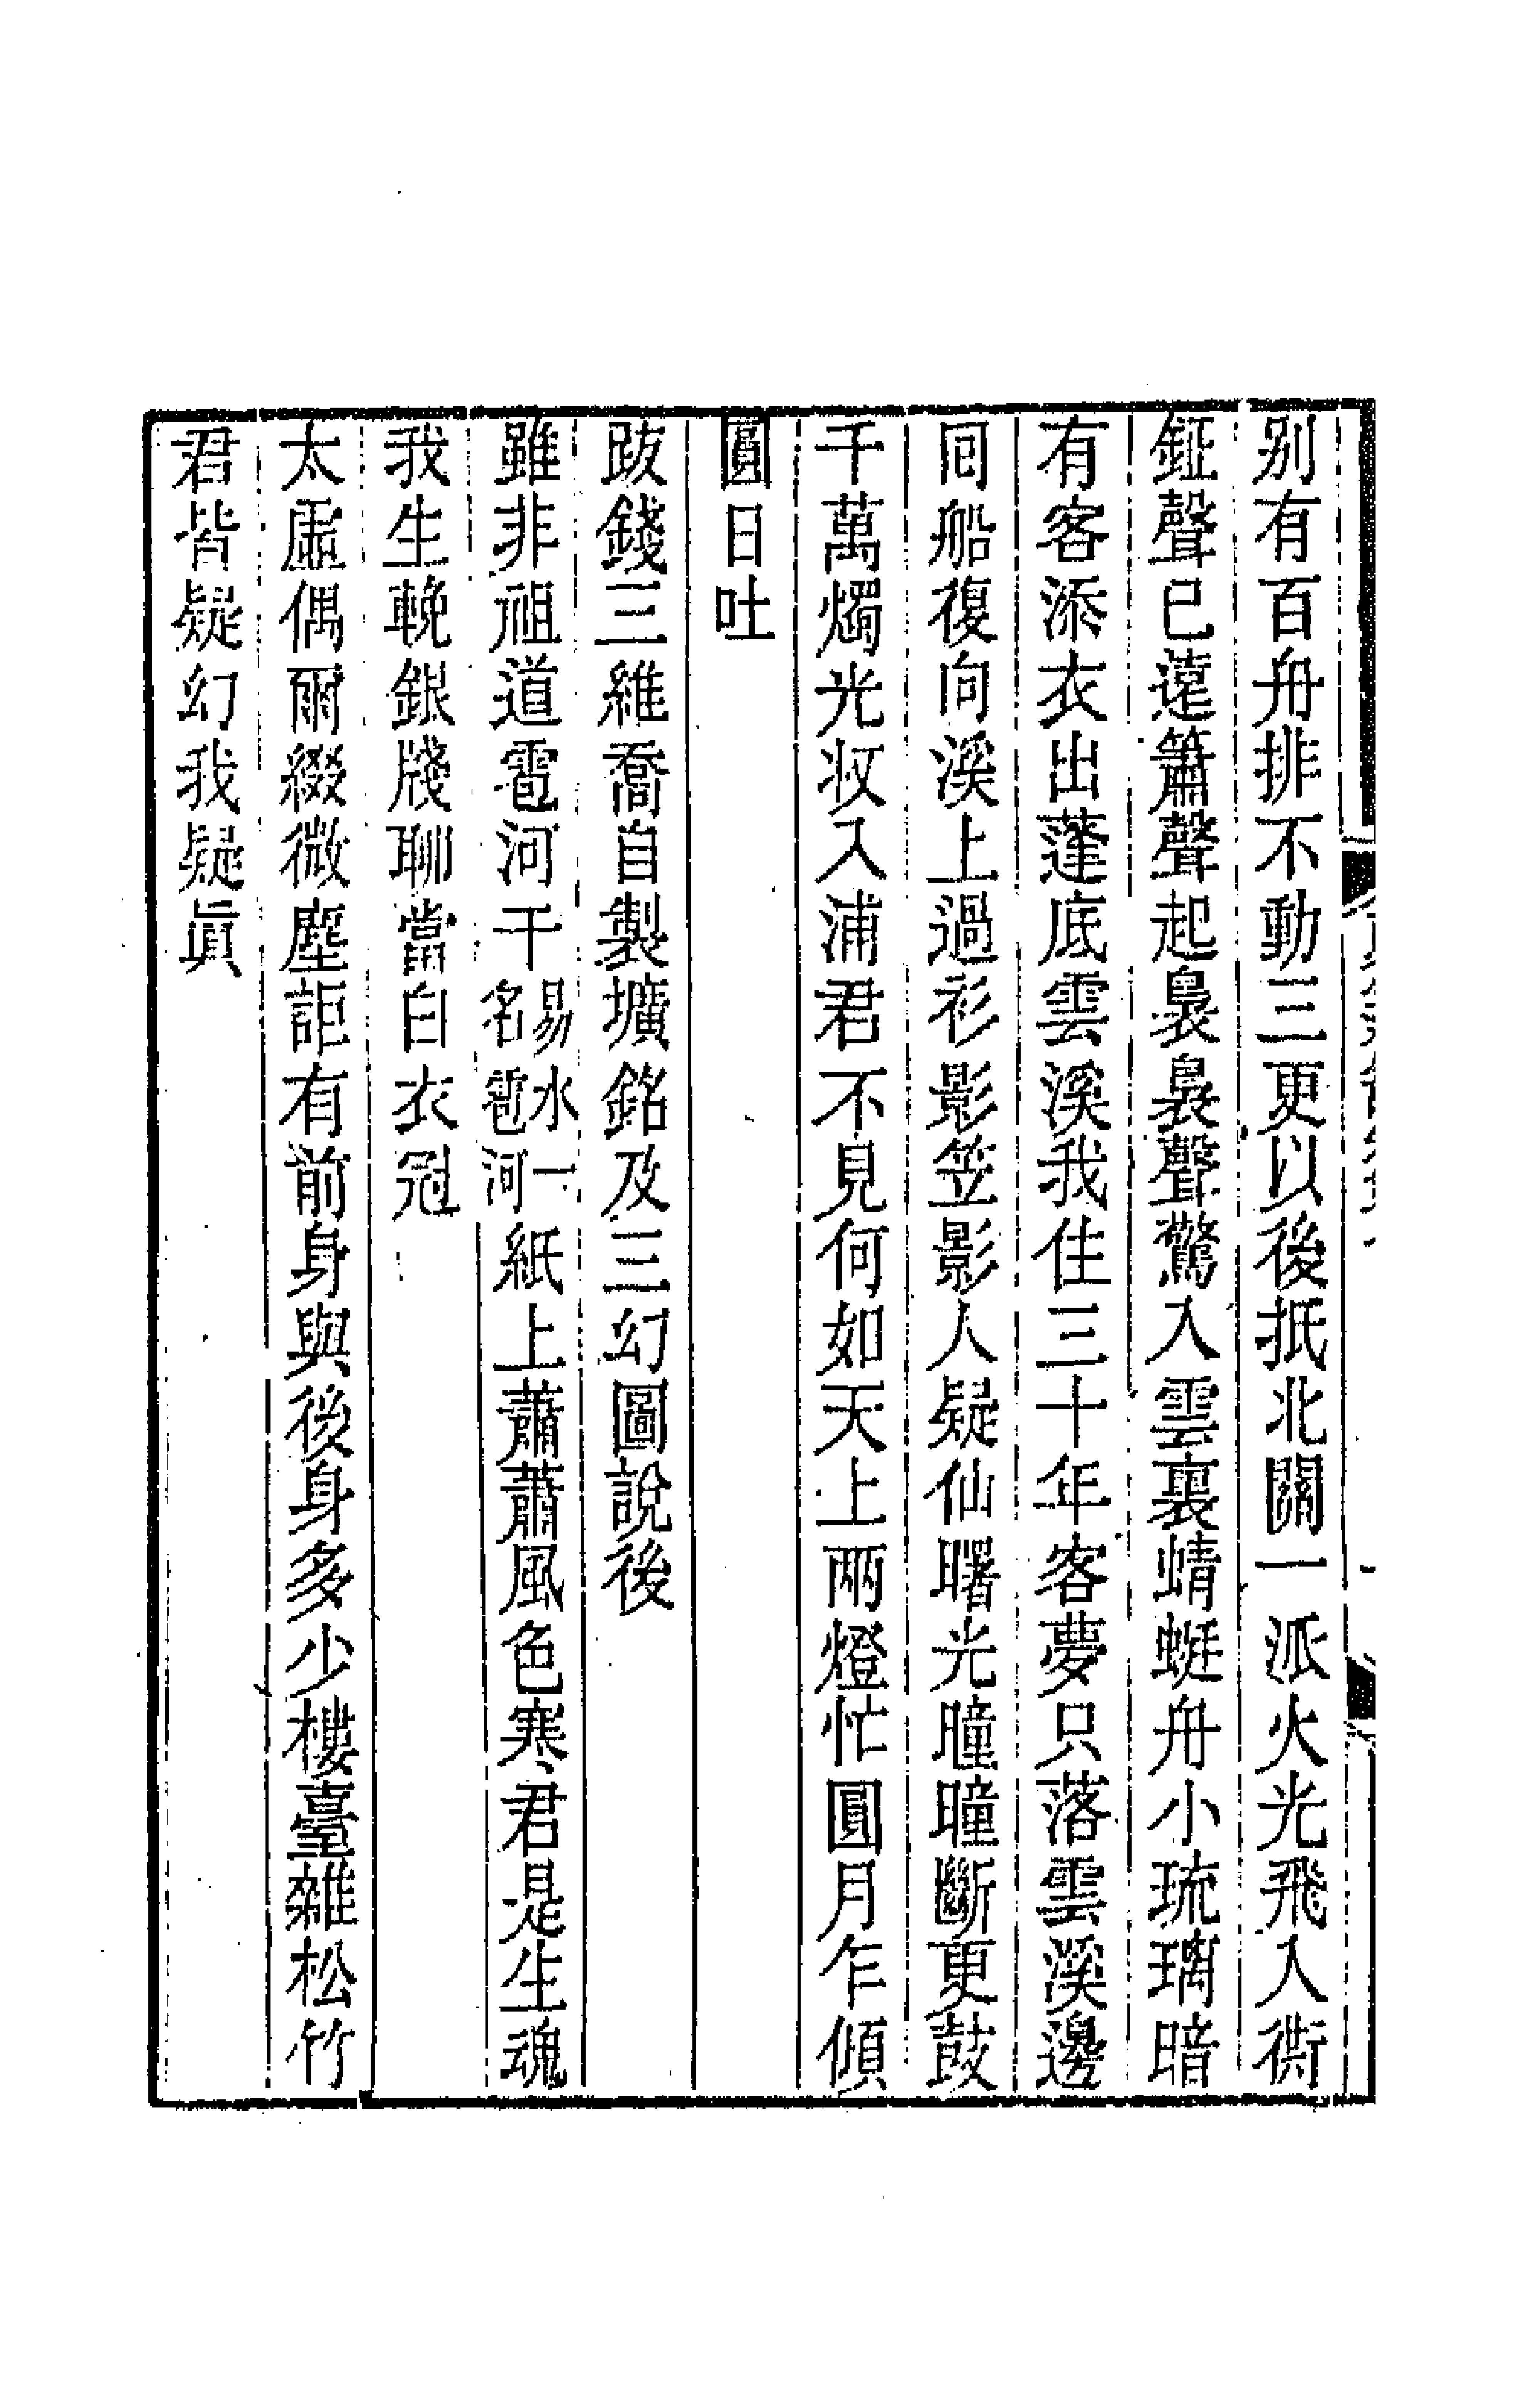 别有百舟排不動三更以後抵北關一派火光飛入衖
鉦聲已遠簫聲起裊裊聲驚入雲裏蜻蜓舟小琉璃暗
有客添衣出蓬底雲溪我住三十年客夢只落雲溪邊
囘船復向溪上過衫影笠影人疑仙曙光曈曈斷更鼓
千萬燭光收入浦君不見何如天上兩燈忙圓月乍傾
圓日吐
跋錢三維喬自製壙銘及三幻圖說後
雖非祖道雹河干易水一名雹河紙上蕭蕭風色寒君是生魂
我生輓銀牋聊當白衣冠
太虛偶爾綴微塵詎有前身與後身多少樓臺雜松竹
君皆疑幻我疑眞